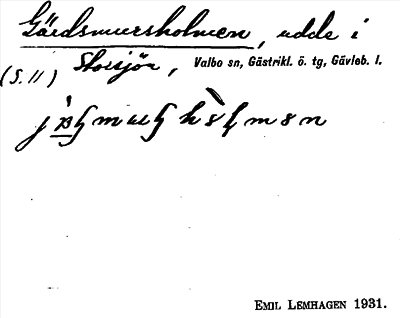 Gärdsmursholmen, udde i
(S. 11) Storsjön, Valbo sn, Gästrikl. ö. tg, Gävleb. l.
EMIL LEMHAGEN 1931.